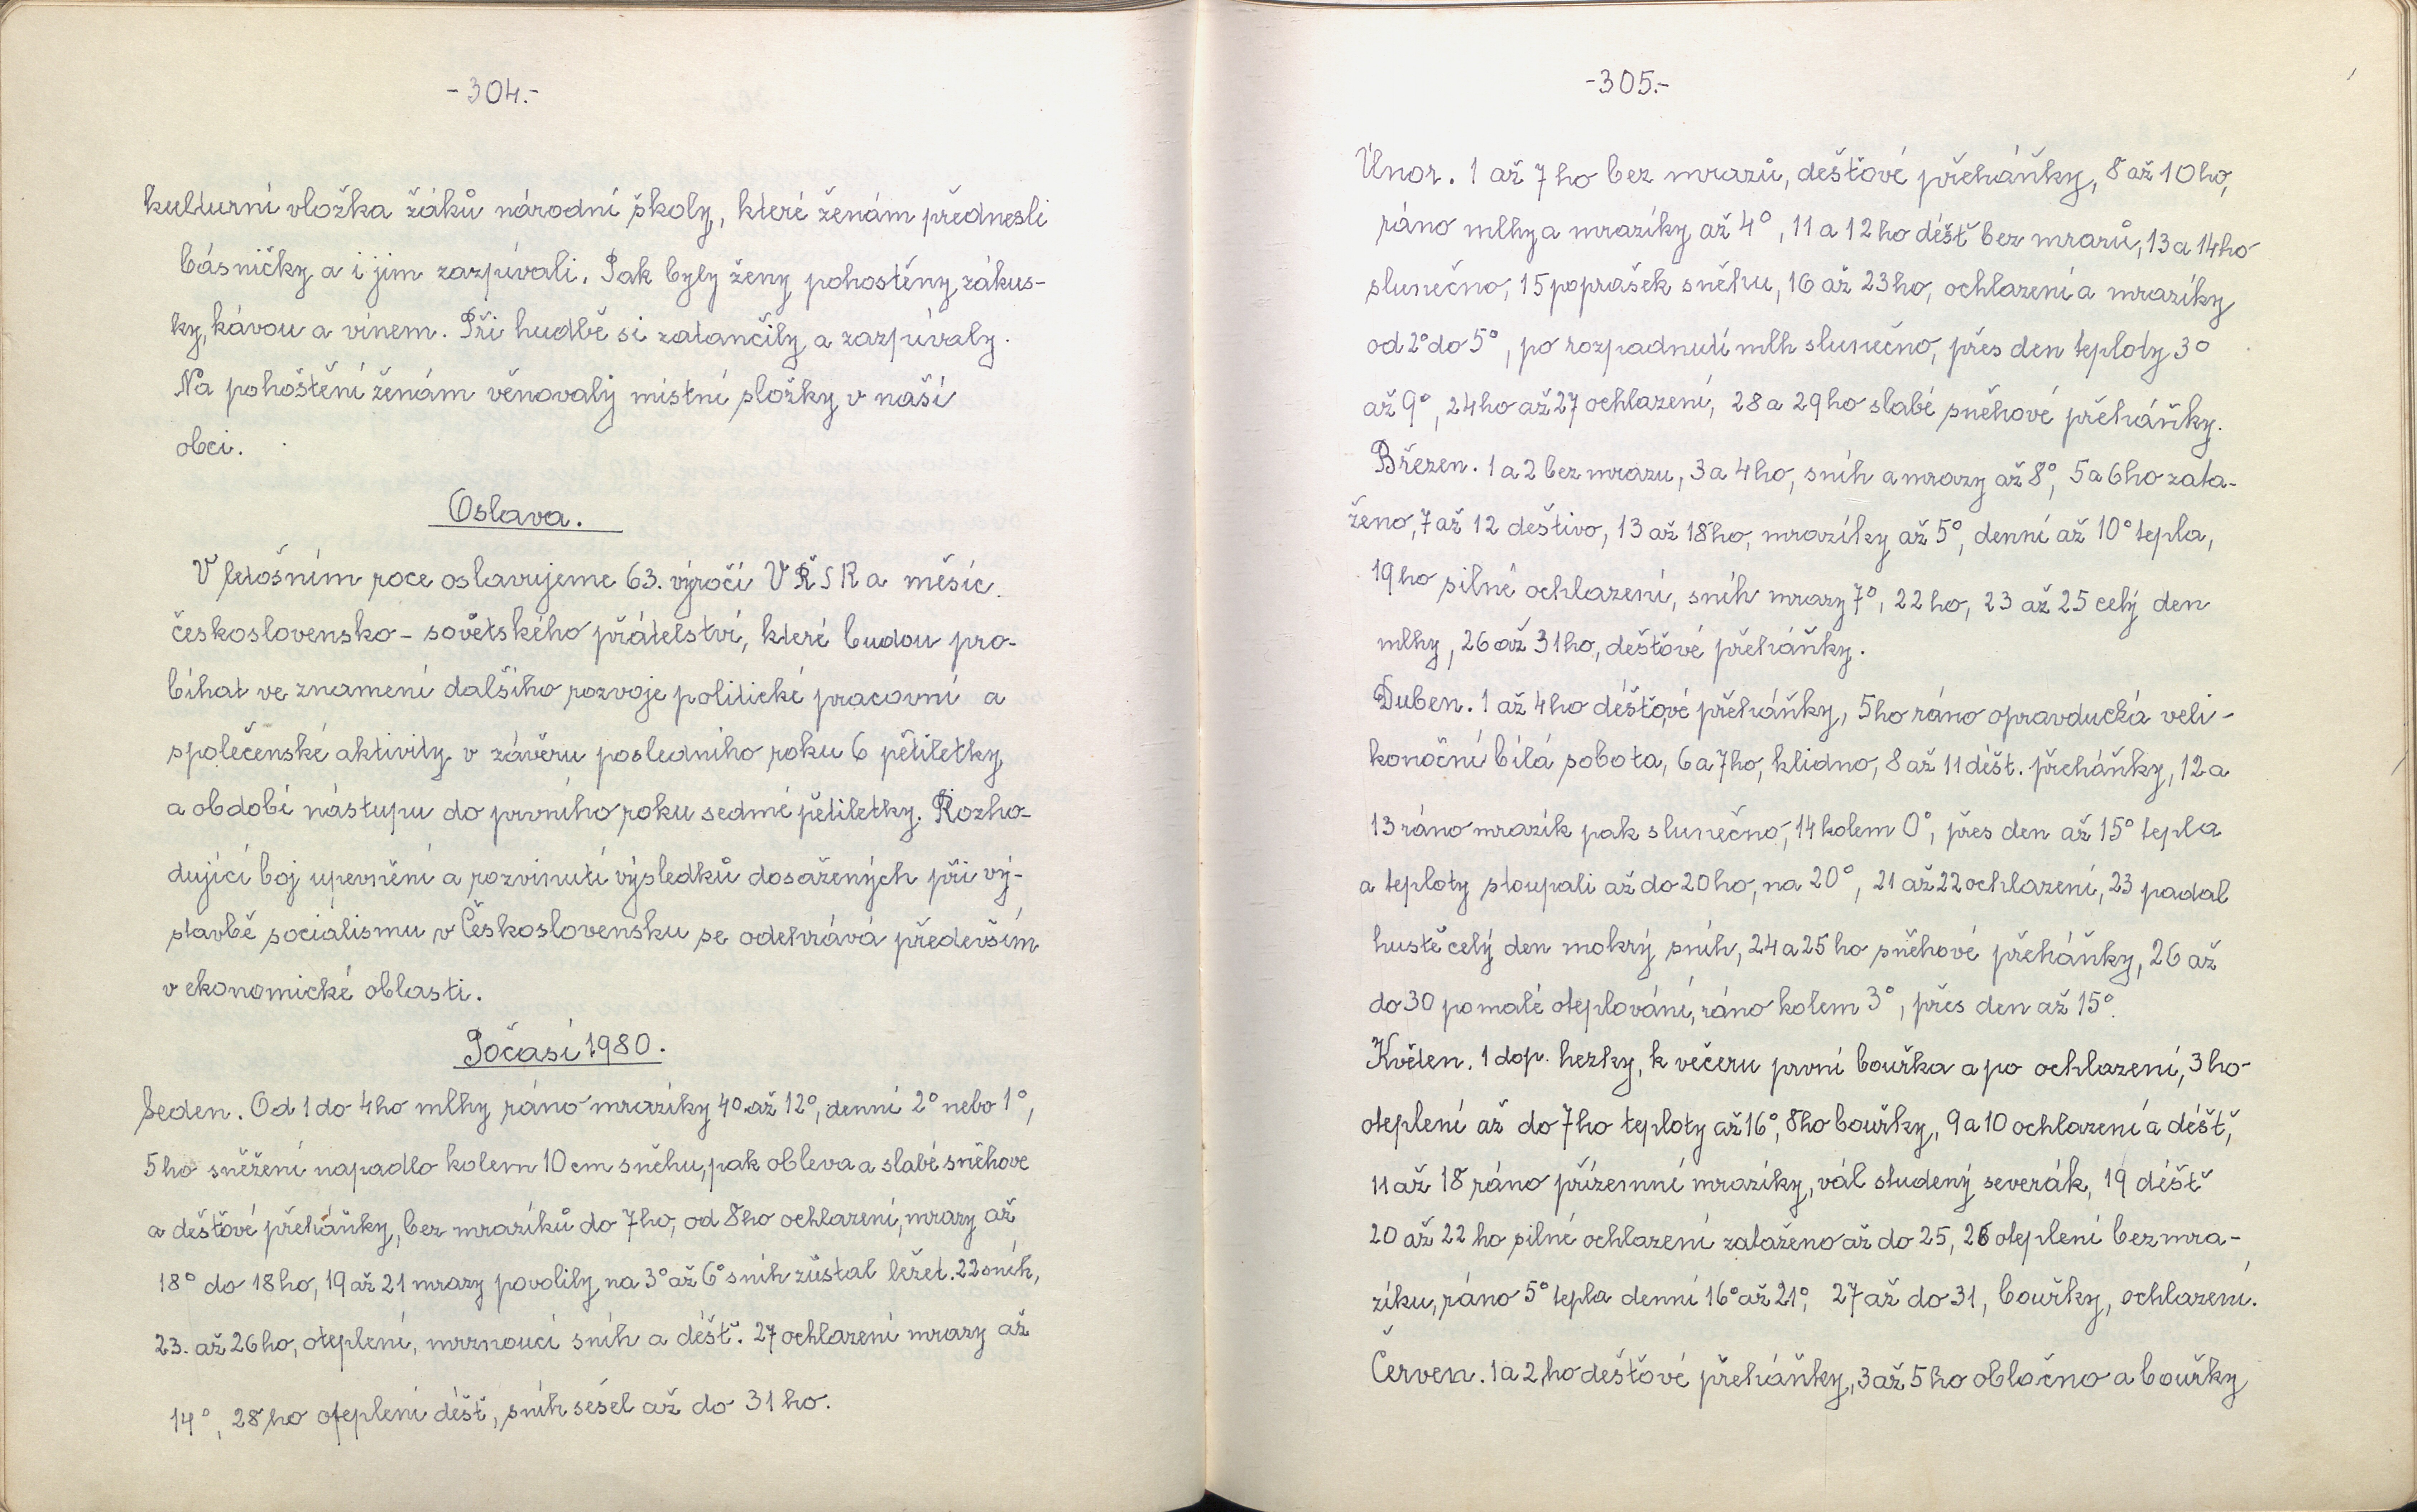 -304.-
kulturní vložka žáků národní školy, které ženám přednesli
básničky a i jim zazpívali. Pak byly ženy pohostěny zákus-
ky, kávou a vínem. Při hudbě si zatančily a zazpívaly.
Na pohoštění ženám věnovaly místní složky v naší
obci.
Oslava.
V letošním roce oslavujeme 63. výročí VŘSR a měsíc
československo-sovětského přátelství, které budou pro-
bíhat ve znamení dalšího rozvoje politické pracovní a
společenské aktivity v závěru posledního roku 6 pětiletky
a období nástupu do prvního roku sedmé pětiletky. Rozho-
dující boj upevnění a rozvinutí výsledků dosažených při vý-
stavbě socialismu v Československu se odehrává především
v ekonomické oblasti.
Počasí 1980.
Leden. Od 1 do 4ho mlhy ráno mrazíky 4° až 12°, denní 2° nebo 1°,
5ho sněžení napadlo kolem 10 cm sněhu, pak obleva a slabé sněhové
a dešťové přeháňky, bez mrazíků do 7ho, od 8ho ochlazení, mrazy až
18° do 18ho, 19 až 21 mrazy povolily, na 3° až 6° sníh zůstal ležet. 22 sníh,
23. až 26ho, oteplení, mrznoucí sníh a déšť. 27 ochlazení mrazy až
14°, 28ho oteplení déšť, sníh sešel až do 31ho.
-305.-
Únor. 1 až 7ho bez mrazů, dešťové přeháňky, 8 až 10ho,
ráno mlhy a mrazíky až 4°, 11 a 12ho déšť bez mrazů, 13 a 14ho
slunečno, 15 poprašek sněhu, 16 až 23ho, ochlazení a mrazíky
od 2° do 5°, po rozpadnutí mlh slunečno, přes den teploty 3°
až 9°, 24ho až 27 ochlazení, 28 a 29ho slabé sněhové přeháňky.
Březen. 1 a 2 bez mrazu, 3 a 4ho, sníh a mrazy až 8°, 5 a 6ho zata-
ženo, 7 až 12 deštivo, 13 až 18ho, mrazíky až 5°, denní až 10° tepla,
19ho silné ochlazení, sníh mrazy 7°, 22ho, 23 až 25 celý den
mlhy, 26 až 31ho, dešťové přeháňky.
Duben. 1 až 4ho déšťové přeháňky, 5ho ráno opravducká veli-
konoční bílá sobota, 6 a 7ho, klidno, 8 až 11 déšt. přeháňky, 12 a
13 ráno mrazík pak slunečno, 14 kolem 0°, přes den až 15° tepla
a teploty stoupali až do 20ho, na 20°, 21 až 22 ochlazení, 23 padal
hustě celý den mokrý sníh, 24 a 25ho sněhové přeháňky, 26 až
do 30 pomalé oteplování, ráno kolem 3°, přes den až 15°.
Květen. 1 dop. hezky, k večeru první bouřka a po ochlazení, 3ho
oteplení až do 7ho teploty až 16°, 8ho bouřky, 9 a 10 ochlazení a déšť,
11 až 18 ráno přízemní mrazíky, vál studený severák, 19 déšť
20 až 22ho silné ochlazení zataženo až do 25, 26 oteplení bez mra-
zíku, ráno 5° tepla denní 16° až 21°, 27 až do 31, bouřky, ochlazení.
Červen. 1 a 2ho dešťové přeháňky, 3 až 5ho oblačno a bouřky